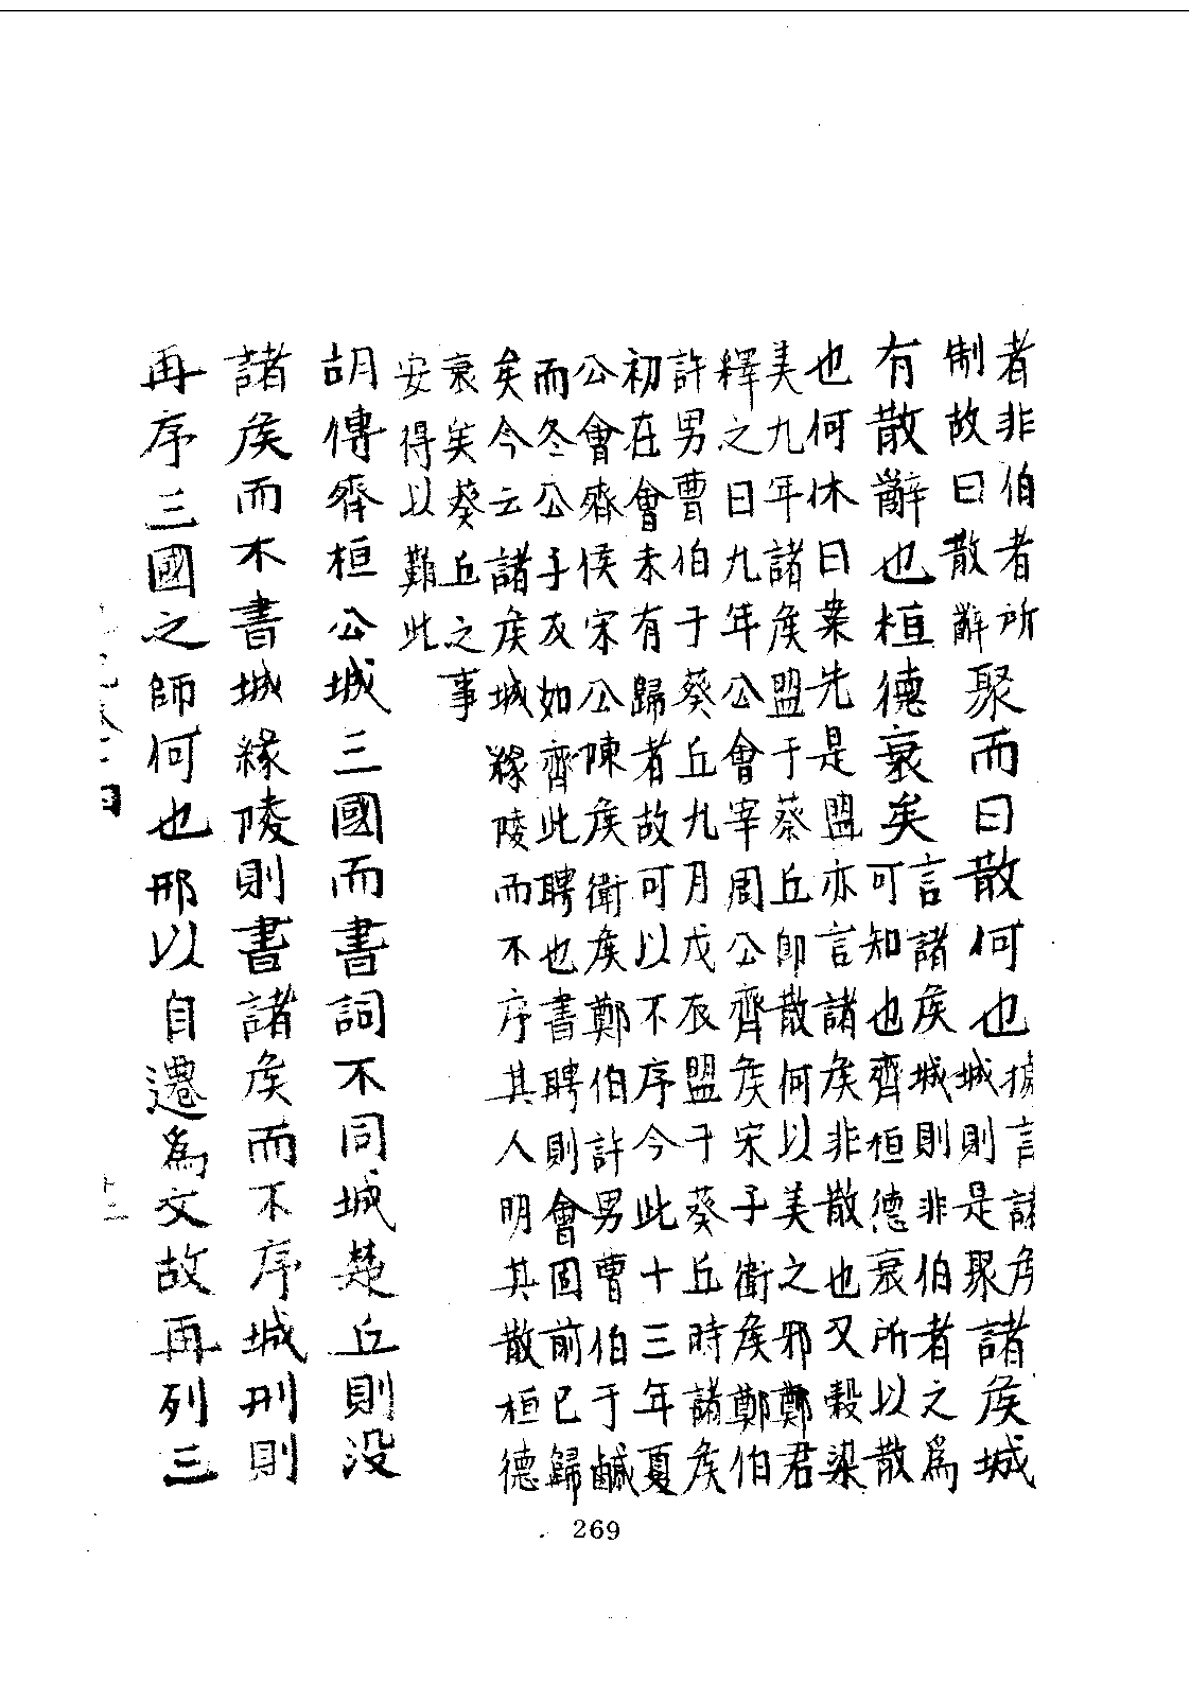 者非伯者所
制故曰散辭
聚而曰散何也
據言諸侯
城則是聚
諸侯城
有散辭也桓德衰矣
言諸侯城則非伯者之為
可知也齊桓德衰所以散
也何休曰案先是盟亦言諸侯非散也又穀梁
美九年諸侯盟于蔡丘即散何以美之邪鄭君
釋之曰九年公會宰周公齊侯宋子衛侯鄭伯
許男曹伯于葵丘九月戊辰盟于葵丘時諸侯
初在會未有歸者故可以不序今此十三年夏
公會齊侯宋公陳侯衛侯鄭伯許男曹伯于鹹
而冬公子友如齊此聘也書聘則會固前已歸
矣今云諸侯城緣陵而不序其人明其散桓德
衰矣葵丘之事
安得以難此
胡傳齊桓公城三國而書詞不同城楚丘則没
諸侯而不書城緣陵則書諸侯而不序城刑則
再序三國之師何也邢以自遷為文故再列三
269